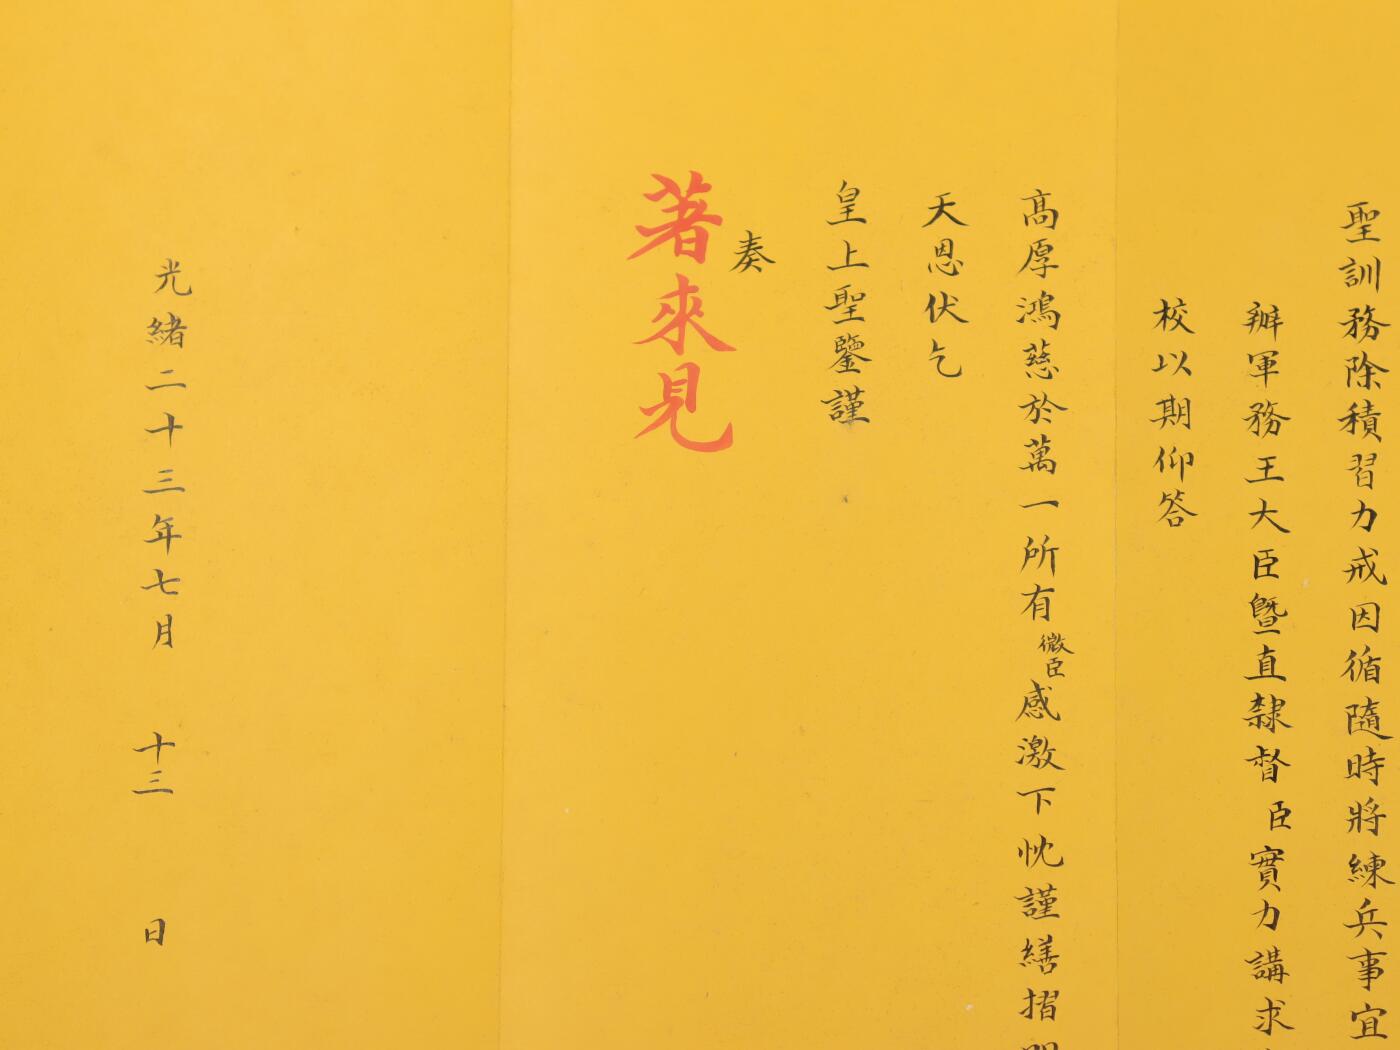 聖訓務除積習力戒因循隨時將練兵事宜
辦軍務王大臣曁直隸督臣實力講求
校以期仰答
高厚鴻慈於萬一所有微臣感激下忱謹繕摺
天恩伏乞
皇上聖鑒謹
奏
著來見
光緒二十三年七月 十三 日